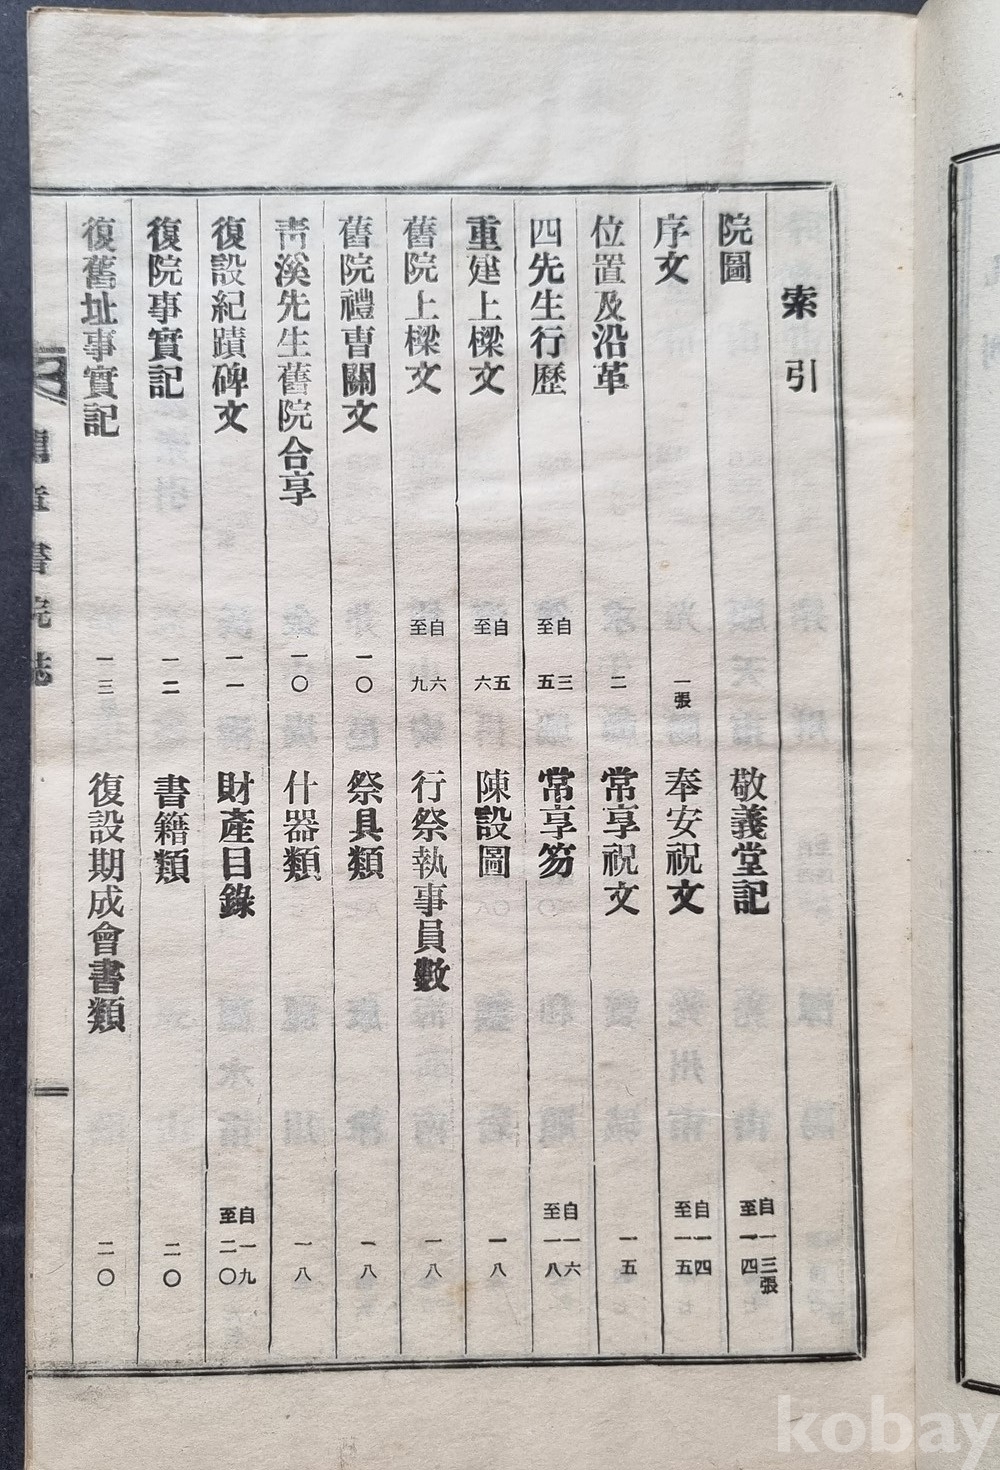 索引
院圖
敬義堂記 自一三張 至一四
序文 一張
奉安祝文 自一四 至一五
位置及沿革 二
常享祝文 一五
四先生行歷 自三 至五
常享笏 自一六 至一八
重建上樑文 自五 至六
陳設圖 一八
舊院上樑文 自六 至九
行祭執事員數 一八
舊院禮曹關文 一〇
祭具類 一八
靑溪先生舊院合享 一〇
什器類 一八
復設紀蹟碑文 一一
財產目錄 自一九 至二〇
復院事實記 一二
書籍類 二〇
復舊址事實記 一三
復設期成會書類 二〇
書院誌
kobay